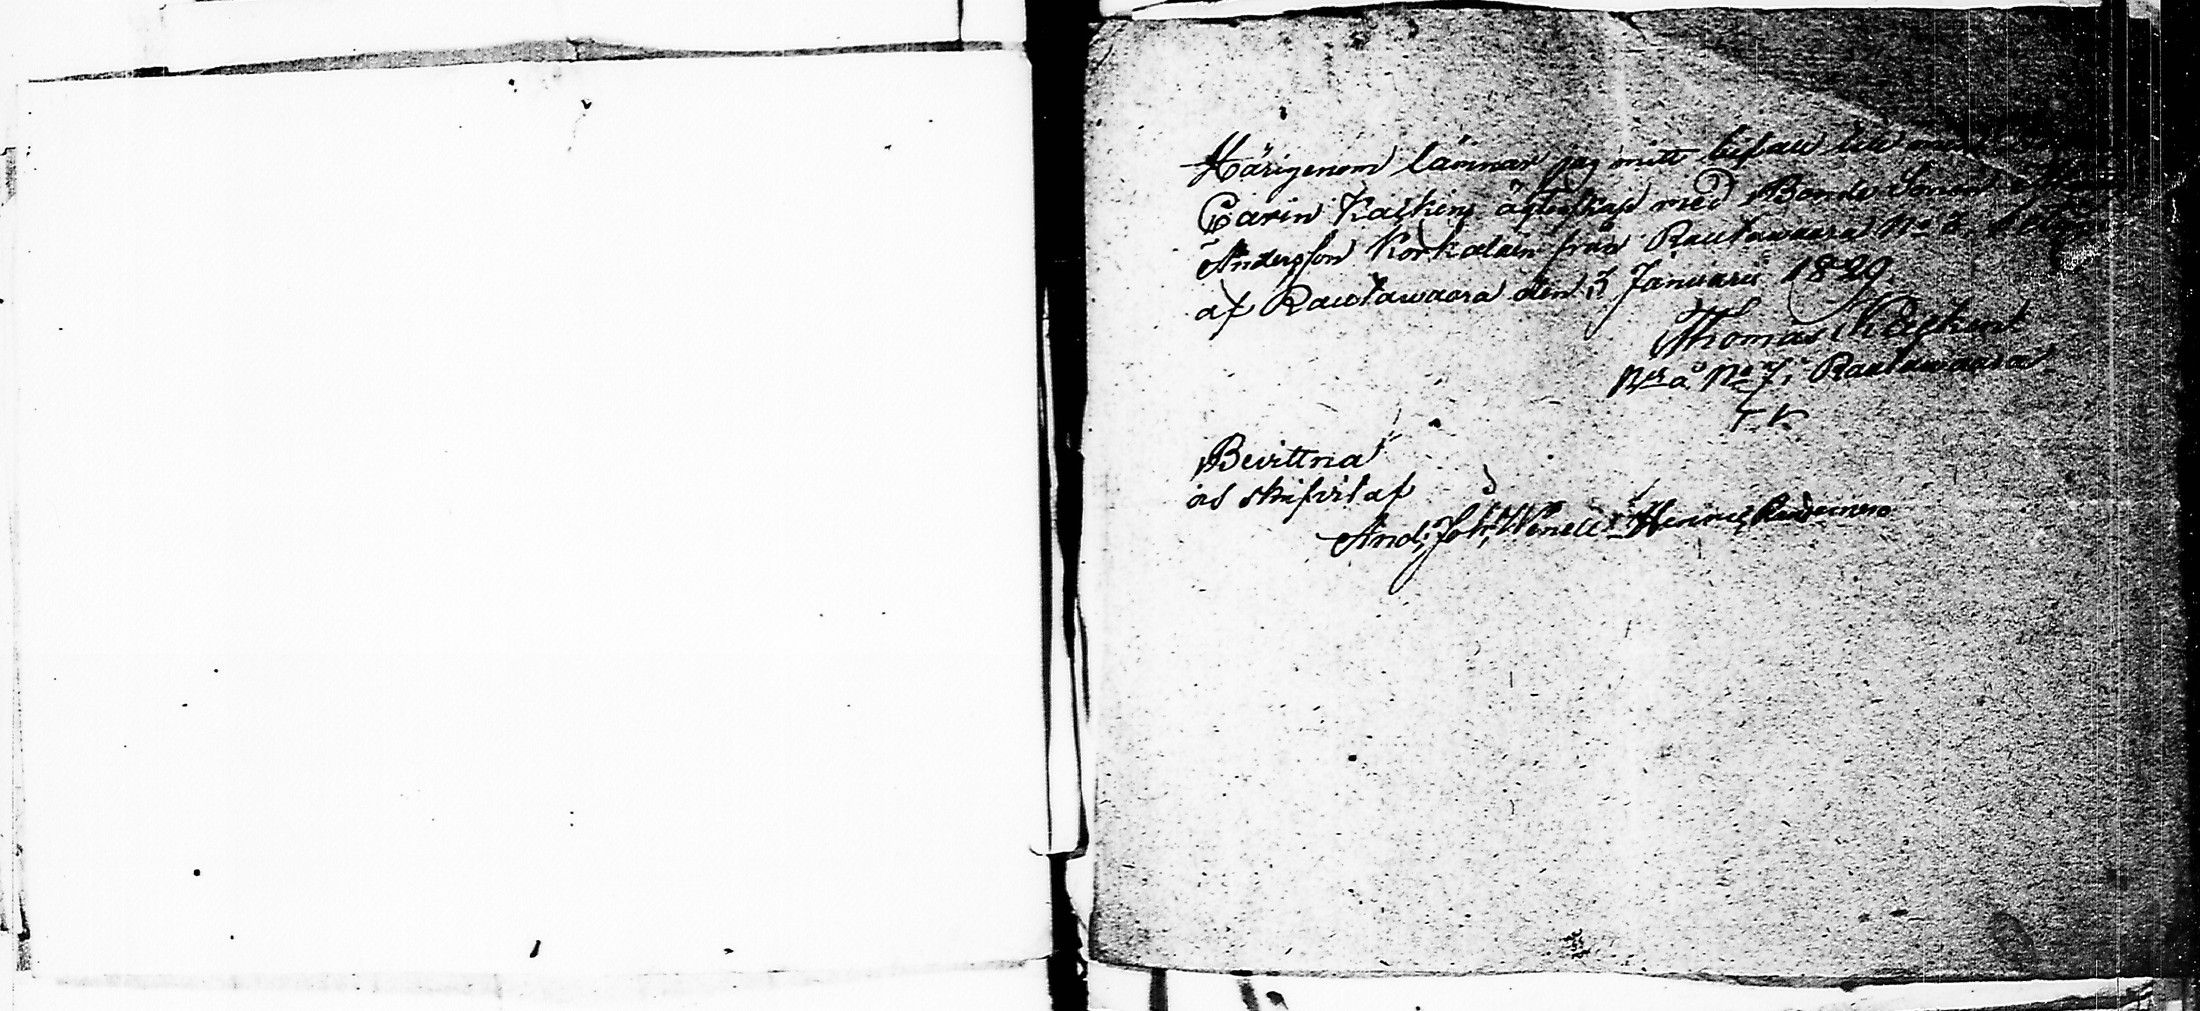 Härigenom lämnar jag mitt bifall till min
Carin Kaskens ägtenskap med Bonde Sonen
Andersson Korkalain från Rautawaara No 3
af Rautawaara den 3 Januarii 1829.
Thomas Kasken
No 7, Rautawaara
T K
Bevittna
And: Joh: Wenell Henric